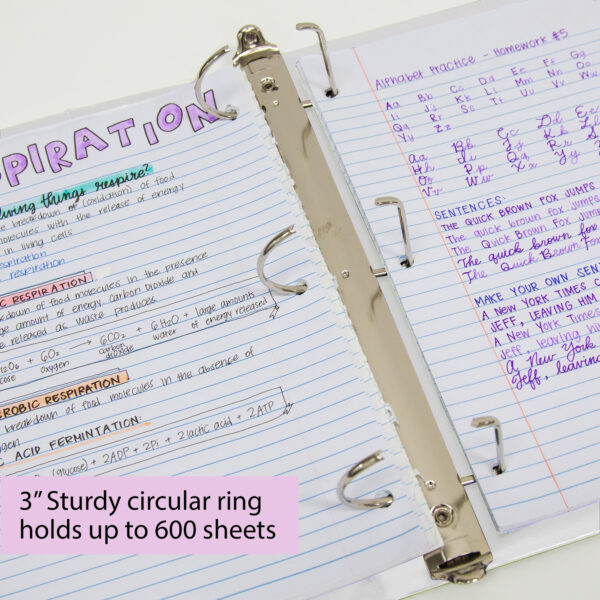 PIRATION
living things respire?
breakdown of (oxidation) of food
molecules with the release of energy
in living cells
respiration
respiration
C RESPIRATION
down of food molecules in the presence
large amount of energy. Carbon dioxide and
e released as waste produces
H12O6 + 6O2 → 6CO2 + 6H2O + large amounts
cose oxygen carbon dioxide water of energy released
EROBIC RESPIRATION
breakdown of food molecules in the absence of
gen
C ACID FERMINTATION:
(glucose) + 2ADP + 2Pi → 2lactic acid + 2ATP
Alphabet Practice - Homework #5
Aa Bb Cc Dd Ee Ff Gg
Ii Jj Kk Ll Mm Nn Oo
Qq Rr Ss Tt Uu Vv Wv
Yy Zz
Aa Bb Cc Dd Ee
Hh Ii Jj Kk Ll
Oo Pp Qq Rr Ss
Vv Ww Xx Yy
SENTENCES:
THE QUICK BROWN FOX JUMPS
The quick brown fox jumps
The Quick Brown Fox Jumps
The quick brown fox
The Quick Brown
MAKE YOUR OWN SENT
A NEW YORK TIMES C
JEFF, LEAVING HIM
A New York Times
Jeff, leaving him
A New York
Jeff, leaving
3" Sturdy circular ring
holds up to 600 sheets